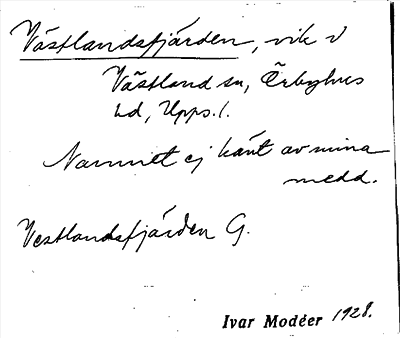 Västlandsfjärden, vik i
Västland sn, Örbyhus
hd, Upps. l.
Namnet ej känt av mina
medd.
Vestlandsfjärden G.
Ivar Modéer 1928.